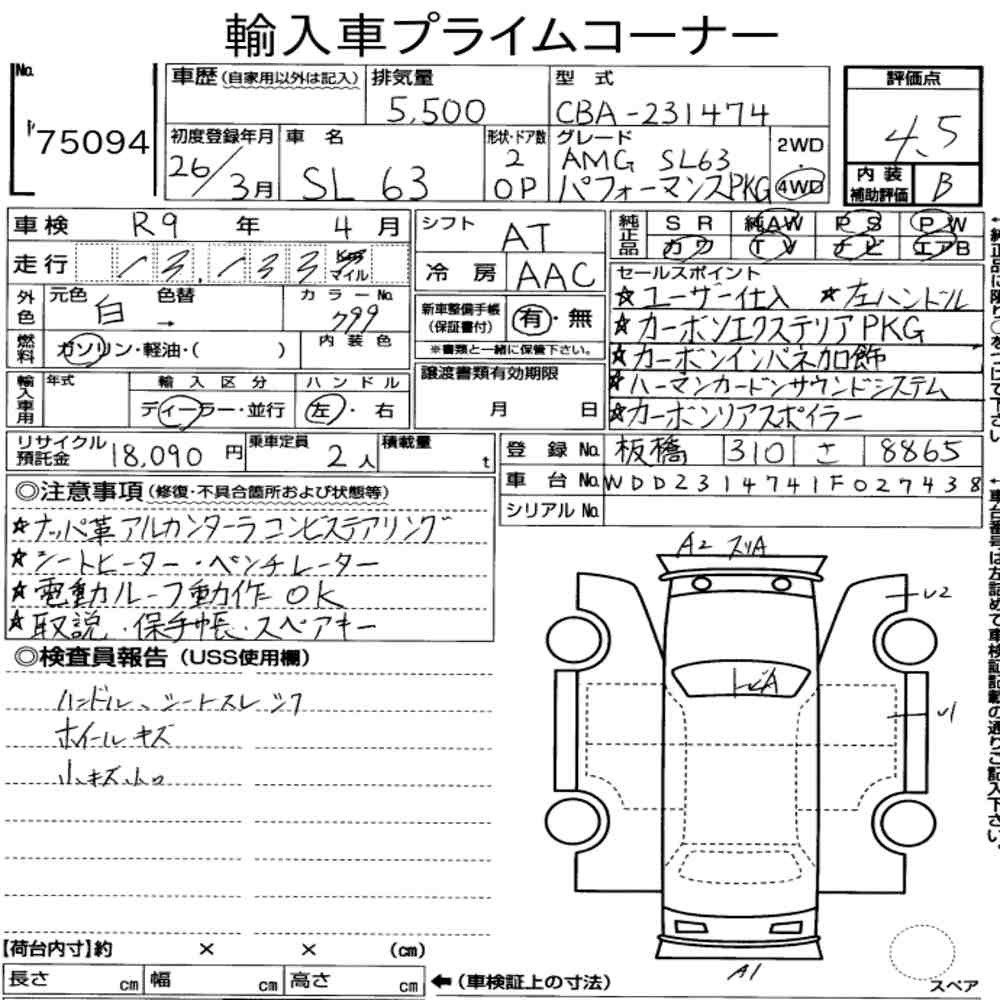 輸入車プライムコーナー
No.
75094
車歴(自家用以外は記入)
排気量
5,500
型式
CBA-231474
評価点
4.5
初度登録年月
26/3月
車名
SL 63
形状・ドア数
2
OP
グレード
AMG SL63
パフォーマンスPKG
2WD
・
4WD
内装
補助評価
B
車検 R9 年 4 月
シフト
AT
純正品
SR 純AW PS PW
カワ TV ナビ エアB
走行 13,133 Km マイル
冷房
AAC
セールスポイント
☆ユーザー仕入 ☆左ハンドル
☆カーボンエクステリアPKG
☆カーボンインパネ加飾
☆ハーマンカードンサウンドシステム
☆カーボンリアスポイラー
外色
元色 色替
白 →
カラーNo.
799
新車整備手帳
(保証書付)
有・無
※書類と一緒に保管下さい。
燃料
ガソリン・軽油・( )
内装色
譲渡書類有効期限
月 日
輸入車用
年式
輸入区分
ディーラー・並行
ハンドル
左・右
リサイクル
預託金
18,090 円
乗車定員
2人
積載量
t
登録No. 板橋 310 さ 8865
車台No. WDD2314741F027438
シリアルNo.
◎注意事項(修復・不具合箇所および状態等)
☆ナッパ革アルカンターラコンビステアリング
☆シートヒーター・ベンチレーター
☆電動ルーフ動作OK
☆取説・保手帳・スペアキー
◎検査員報告(USS使用欄)
ハンドル、シートスレシワ
ホイールキズ
小キズ小凹
A2 スリA
U2
トビA
U1
A1
スペア
【荷台内寸】約 × × (cm)
長さ cm 幅 cm 高さ cm
←(車検証上の寸法)
←純正品に限り○をつけて下さい
←車台番号は左詰めで車検証記載の通りご記入下さい。